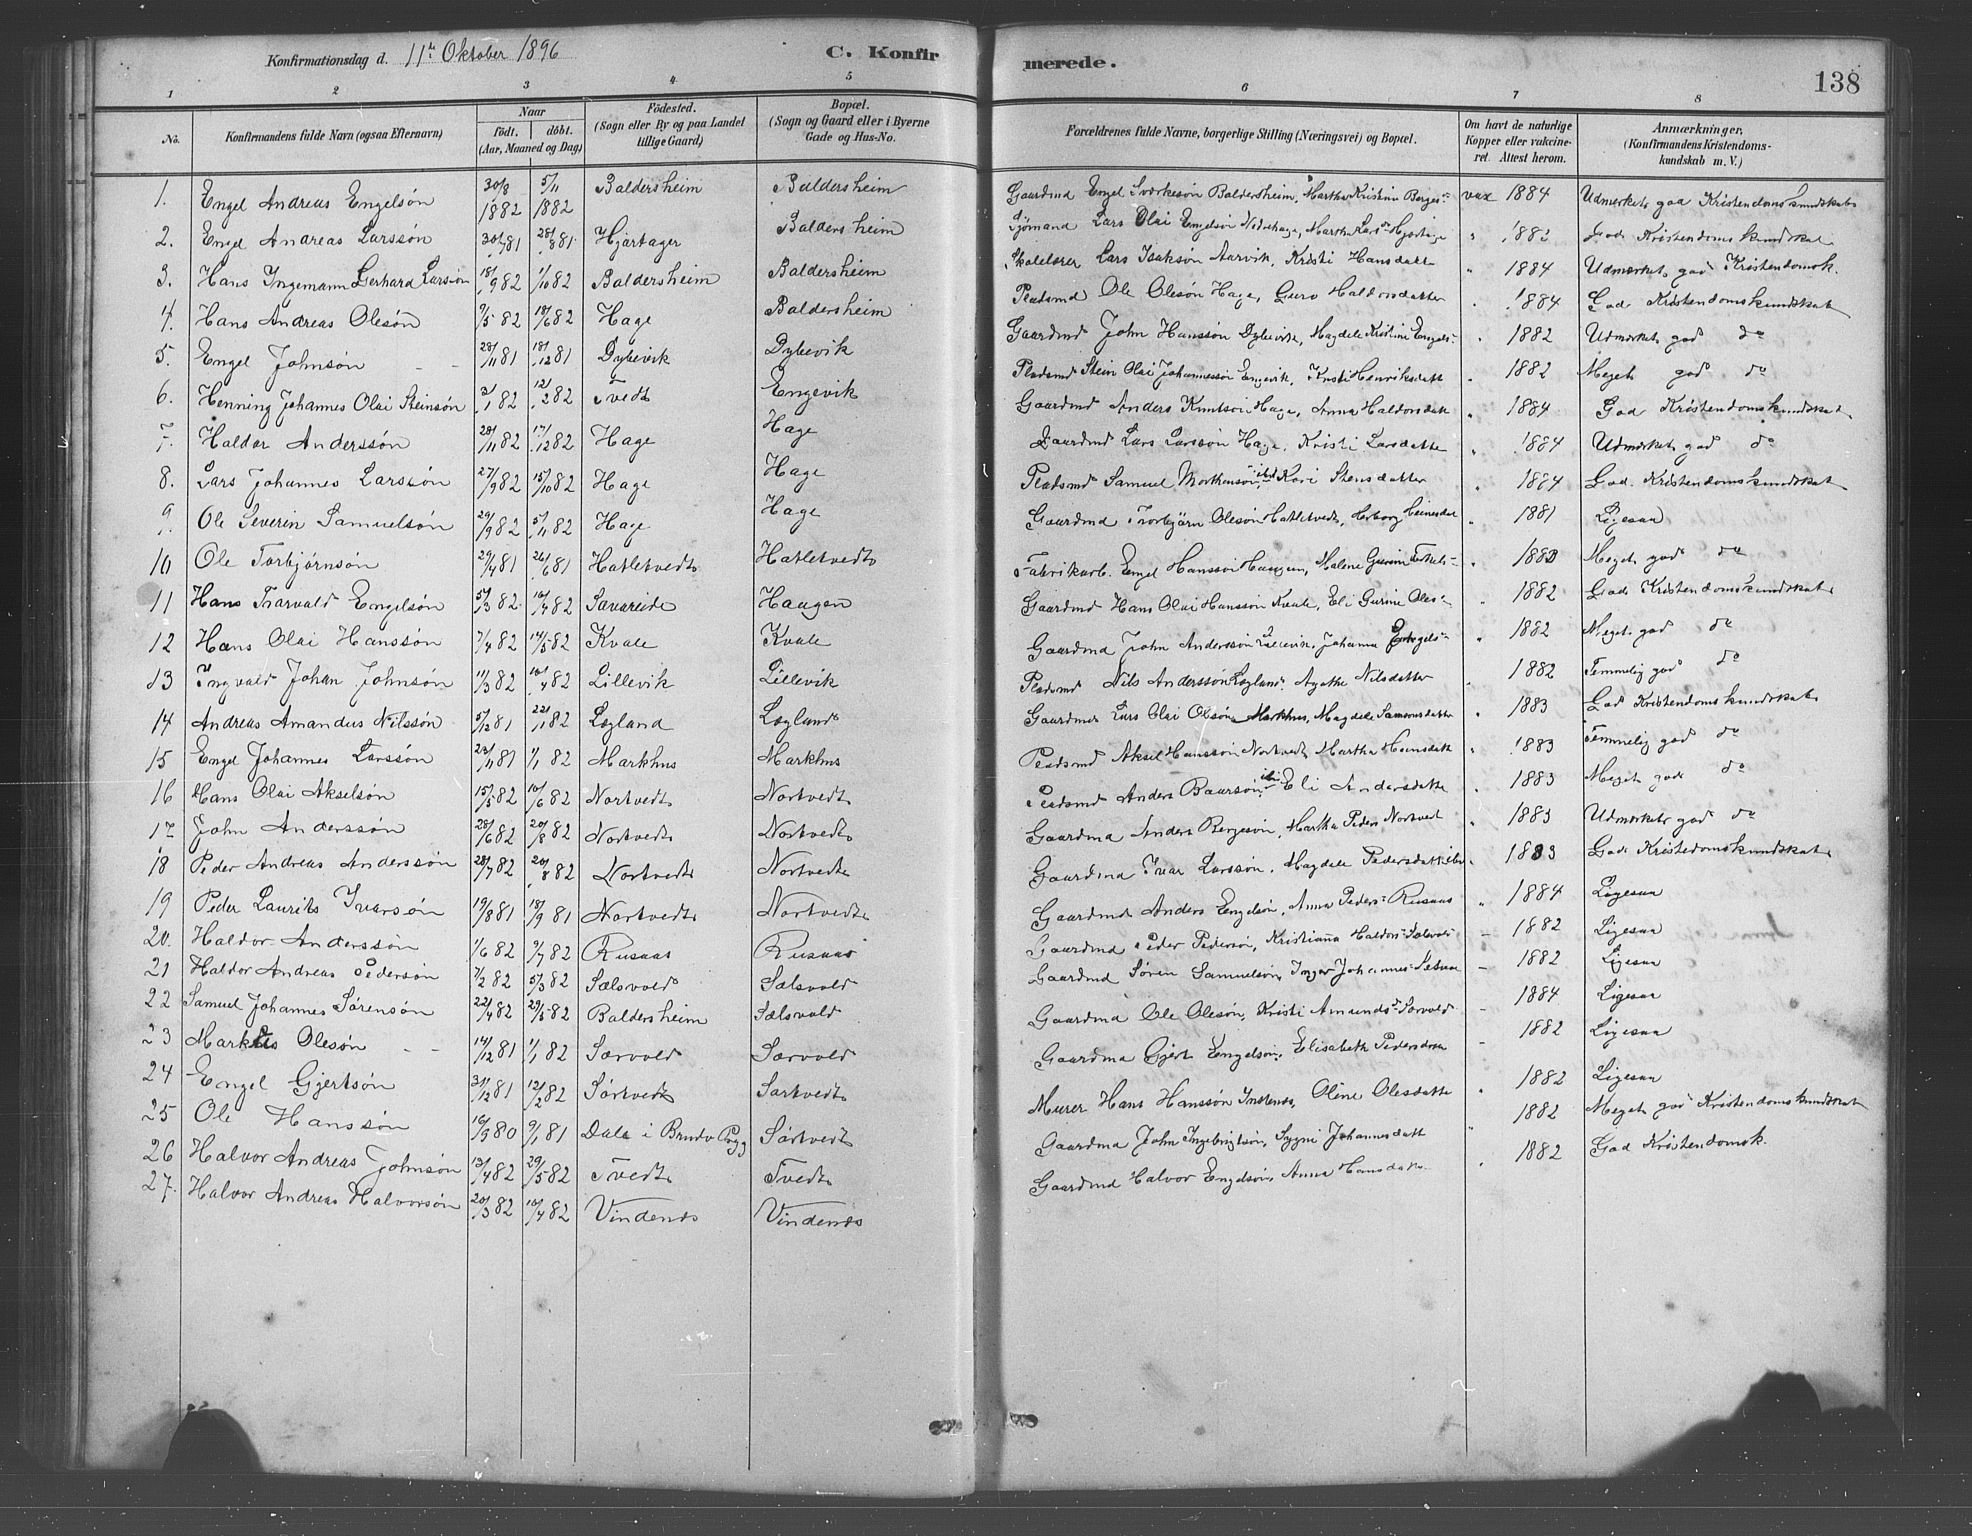 Konfirmationsdag d. 11te Oktober 1896 C. Konfirmerede. 138
1 2 3 4 5 6 7 8
No. Konfirmandens fulde Navn (ogsaa Efternavn) Naar født. døbt. (Aar, Maaned og Dag) Fødested. (Sogn eller By og paa Landet tillige Gaard) Bopæl. (Sogn og Gaard eller i Byerne Gade og Hus-No. Forældrenes fulde Navne, borgerlige Stilling (Næringsvei) og Bopæl. Om havt de naturlige Kopper eller vakcineret. Attest herom. Anmærkninger, (Konfirmandens Kristendomskundskab m. V.)
1. Engel Andreas Engelsøn 30/8 1882 5/11 1882 Baldersheim Baldersheim Gaardmd Engel Sværkesøn Baldersheim, Martha Kristine Berges- vax 1884 Udmerket god Kristendomskundskab
2. Engel Andreas Larssøn 81 28/8 81 Hjartager Baldersheim Sjømand Lars Olai Engelsøn Martha Lars Hjartager " God Kristendomskundskab
3. Hans Ingemann Gerhard Larsøn 18/9 82 1/10 82 Baldersheim Baldersheim Skolelærer Lars Isaksøn Aarvik, Kristi Hansdatter " 1884 Udmerket god Kristendomsk.
4. Hans Andreas Olesøn 9/5 82 18/6 82 Hage Baldersheim Pladsmd Ole Olesøn Hage, Guro Haldorsdatter " 1884 God Kristendomskundskab
5. Engel Johnsøn - - 28/11 81 18/12 81 Dybevik Dybevik Gaardmd John Hanssøn Dybevik, Magdele Kristine Engels- " 1882 Udmerket god do
6. Henning Johannes Olai Steinsøn 3/1 82 12/2 82 Tvedt Engevik Pladsmd Stein Olai Johannessøn Engevik, Kristi Henriksdatt " 1882 Meget god do
7. Haldor Anderssøn 28/11 82 17/12 82 Hage Hage Gaardmd Anders Knutson Hage, Anna Haldorsdatt " 1884 God Kristendomskundskab
8. Lars Johannes Larssøn 27/9 82 15/10 82 Hage Hage Gaardmd Lars Larssøn Hage, Kristi Larsdatte " 1884 Udmerket god do
9. Ole Severin Samuelsøn 29/9 82 5/11 82 Hage Hage Pladsmd Samuel Mortensøn ibd Kari Stensdatter " 1884 God Kristendomskundskab
10 Ole Torbjørnsøn 29/4 81 26/6 81 Hatletvedt Hatletvedt Gaardmd Torbjørn Olesøn Hatletvedt, Herborg " 1881 Ligesaa
11 Hans Tarvald Engelsøn 5/3 82 16/4 82 Sævareide Haugen Fabrikarb. Engel Hanssøn Haugen, Malene Gurine Torkels- " Meget god do
12 Hans Olai Hanssøn 7/4 82 14/5 82 Kvale Kvale Gaardmd Hans Olai Hanssøn Kvale, Eli Gurine Oles- " 1882 God Kristendomskundskab
13 Ingvald Johan Johnsøn 11/3 82 16/4 82 Lillevik Lillevik Gaardmd John Anderssøn Lillevik, Johanna Engels- " 1882 Meget god do
14 Andreas Amandus Nilssøn 5/12 81 22/1 82 Løgland Løgland Pladsmd Nils Anderssøn Løgland, Agathe Nilsdatter " 1882 Temmelig god do
15 Engel Johannes Larssøn 23/11 81 1/1 82 Markhus Markhus Gaardmd Lars Olai Olsøn Markhus, Magdele Samsonsdatter " 1883 God Kristendomskundskab
16 Hans Olai Akselsøn 15/5 82 10/6 82 Nortvedt Nortvedt Pladsmd Aksel Hanssøn Nortvedt Martha Hansdatt " 1883 Temmelig god do
17 John Anderssøn 28/6 82 20/8 82 Nortvedt Nortvedt Pladsmd Anders Baarsøn ibd Eli Andersdatte " 1883 Meget god do
18 Peder Andreas Anderssøn 28/7 82 20/8 82 Nortvedt Nortvedt Gaardmd Anders Bergesøn, Martha Peders Nortvedt " 1883 Udmerket god do
19 Peder Laurits Ivarsøn 19/8 81 18/9 81 Nortvedt Nortvedt Gaardmd Ivar Larssøn, Magdele Pedersdatt ibd " 1883 God Kristedomskundskab
20. Haldor Anderssøn 1/6 82 9/7 82 Rusaas Rusaas Gaardmd Anders Engelsøn, Anna Peders- Rusaas " 1884 Ligesaa
21 Haldor Andreas Pedersøn 7/2 82 5/3 82 Sælsvold Sælsvold Gaardmd Peder Pedersøn, Kristianna Haldors- Sælsvold - 1882 Ligesaa
22 Samuel Johannes Sørensøn 22/4 82 29/5 82 Baldersheim Sælsvold Gaardmd Søren Samuelsøn, Inger Johannes- - 1882 Ligesaa
23 Markus Olesøn - - 14/12 81 1/1 82 Sørvold Sørvold Gaardmd Ole Olesøn, Kristi Amunds- Sørvold - 1884 Ligesaa
24 Engel Gjertsøn 31/12 81 12/2 82 Sørtvedt Sørtvedt Gaardmd Gjert Engelsøn, Elisabeth Pedersdtr - 1882 Ligesaa
25 Ole Hanssøn 16/9 80 9/1 81 Dale i Bruvik Pgj Sørtvedt Murer Hans Hanssøn Oline Olesdatte " 1882 Ligesaa
26 Halvor Andreas Johnsøn 13/4 82 29/5 82 Tvedt Tvedt Gaardmd John Ingebrigtsøn, Sygni Johannesdatt " 1882 Meget god Kristendomskundskab
27. Halvor Andreas Halvorsøn 20/3 82 10/4 82 Vindenes Vindenes Gaardmd Halvor Engelsøn, Anna Hansdatter " 1882 God Kristendomsk.